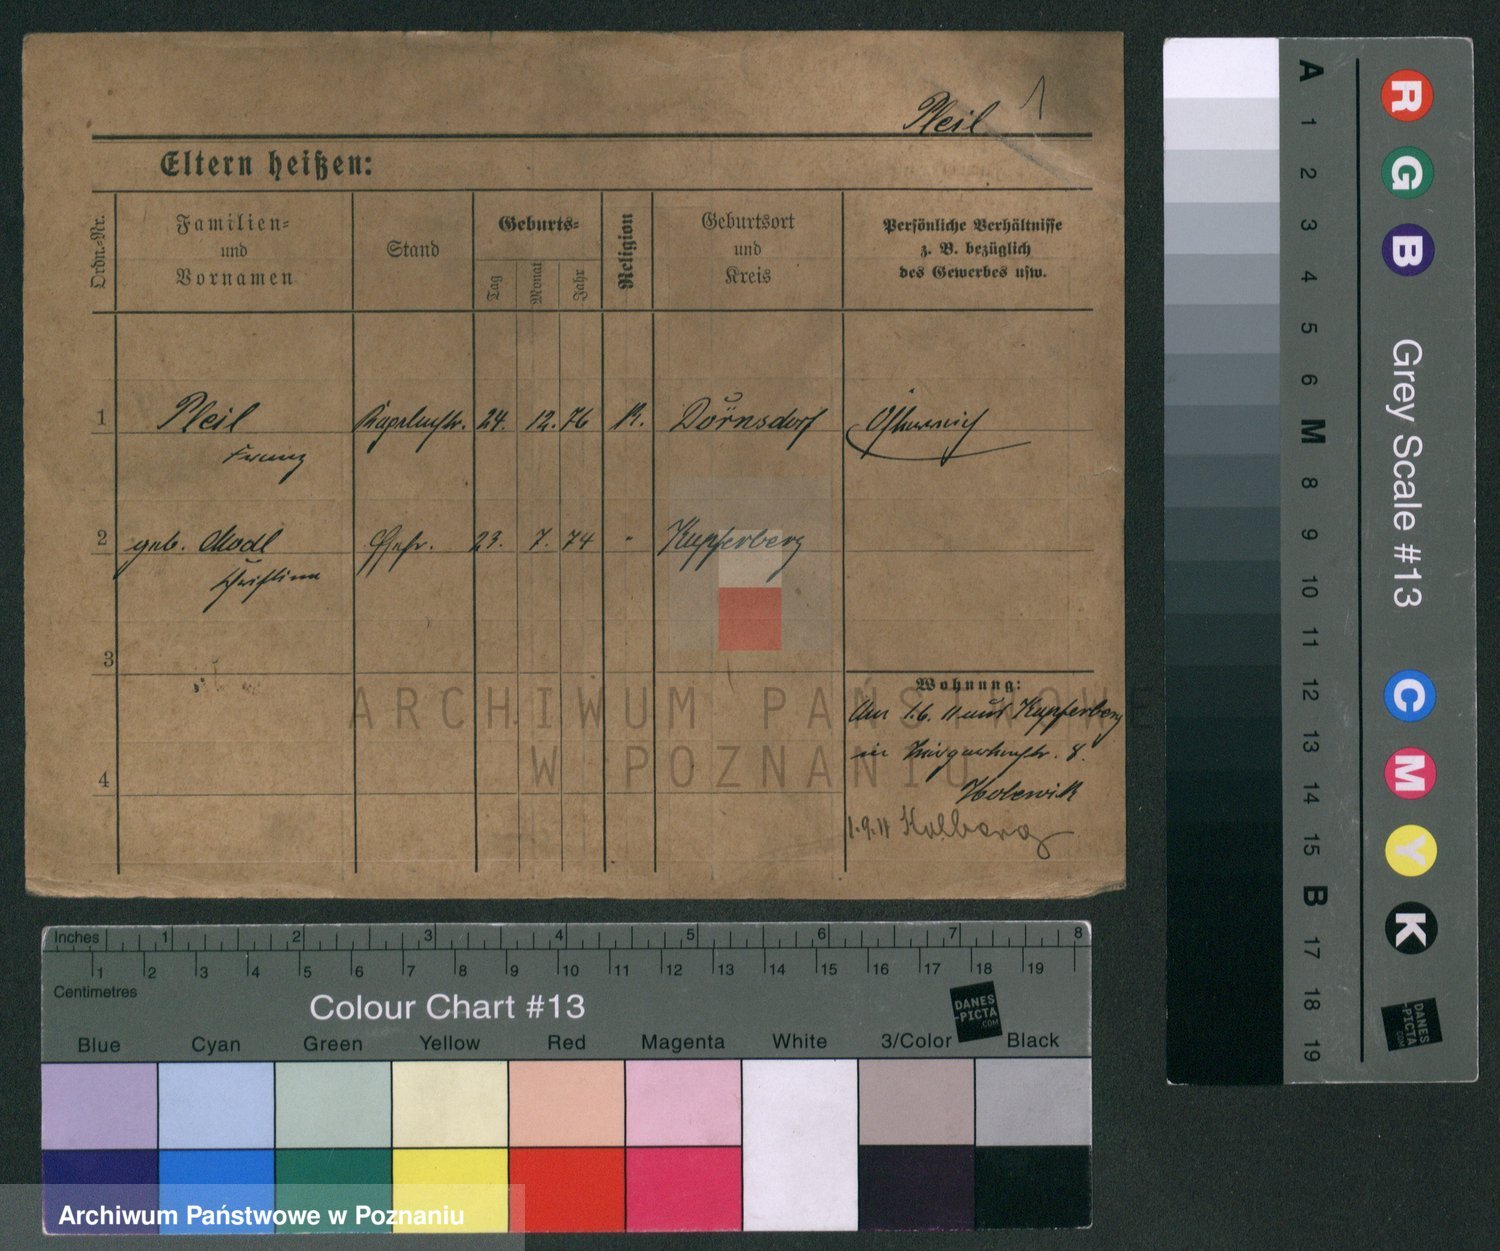 Pleil 1
Eltern heißen:
Ordn.-Nr.
Familien-
und
Vornamen
Stand
Geburts-
Tag
Monat
Jahr
Religion
Geburtsort
und
Kreis
Persönliche Verhältnisse
z. B. bezüglich
des Gewerbes usw.
1 Pleil 24. 12. 76 K. Dörnsdorf
Franz
2 geb. Modl Ehefr. 23. 7. 74 " Kupferberg
Christine
3
4
Wohnung:
Am 1.6. 11 aus Kupferberg
in 8.
1.9.11 Kolberg
ARCHIWUM PAŃSTWOWE
W POZNANIU
Inches 1 2 3 4 5 6 7 8
1 2 3 4 5 6 7 8 9 10 11 12 13 14 15 16 17 18 19
Centimetres
Colour Chart #13
DANES
-PICTA
.COM
Blue Cyan Green Yellow Red Magenta White 3/Color Black
Archiwum Państwowe w Poznaniu
A 1 2 3 4 5 6 M 8 9 10 11 12 13 14 15 B 17 18 19
R G B
Grey Scale #13
C M Y K
DANES
-PICTA
.COM